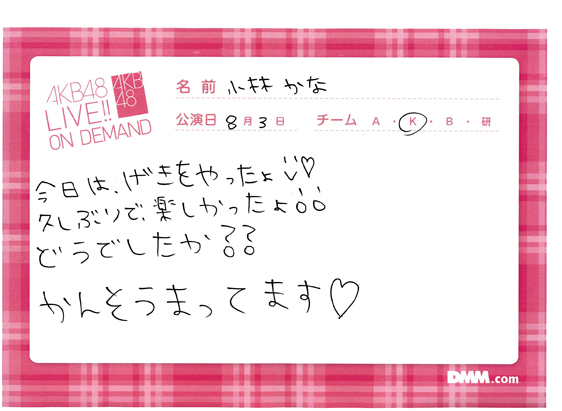 AKB48
LIVE!!
ON DEMAND
AKB
48
名前 小林かな
公演日 8月3日 チーム A・K・B・研
今日は、げきをやったよ♡
久しぶりで、楽しかったよ!!
どうでしたか??
かんそうまってます♡
DMM.com